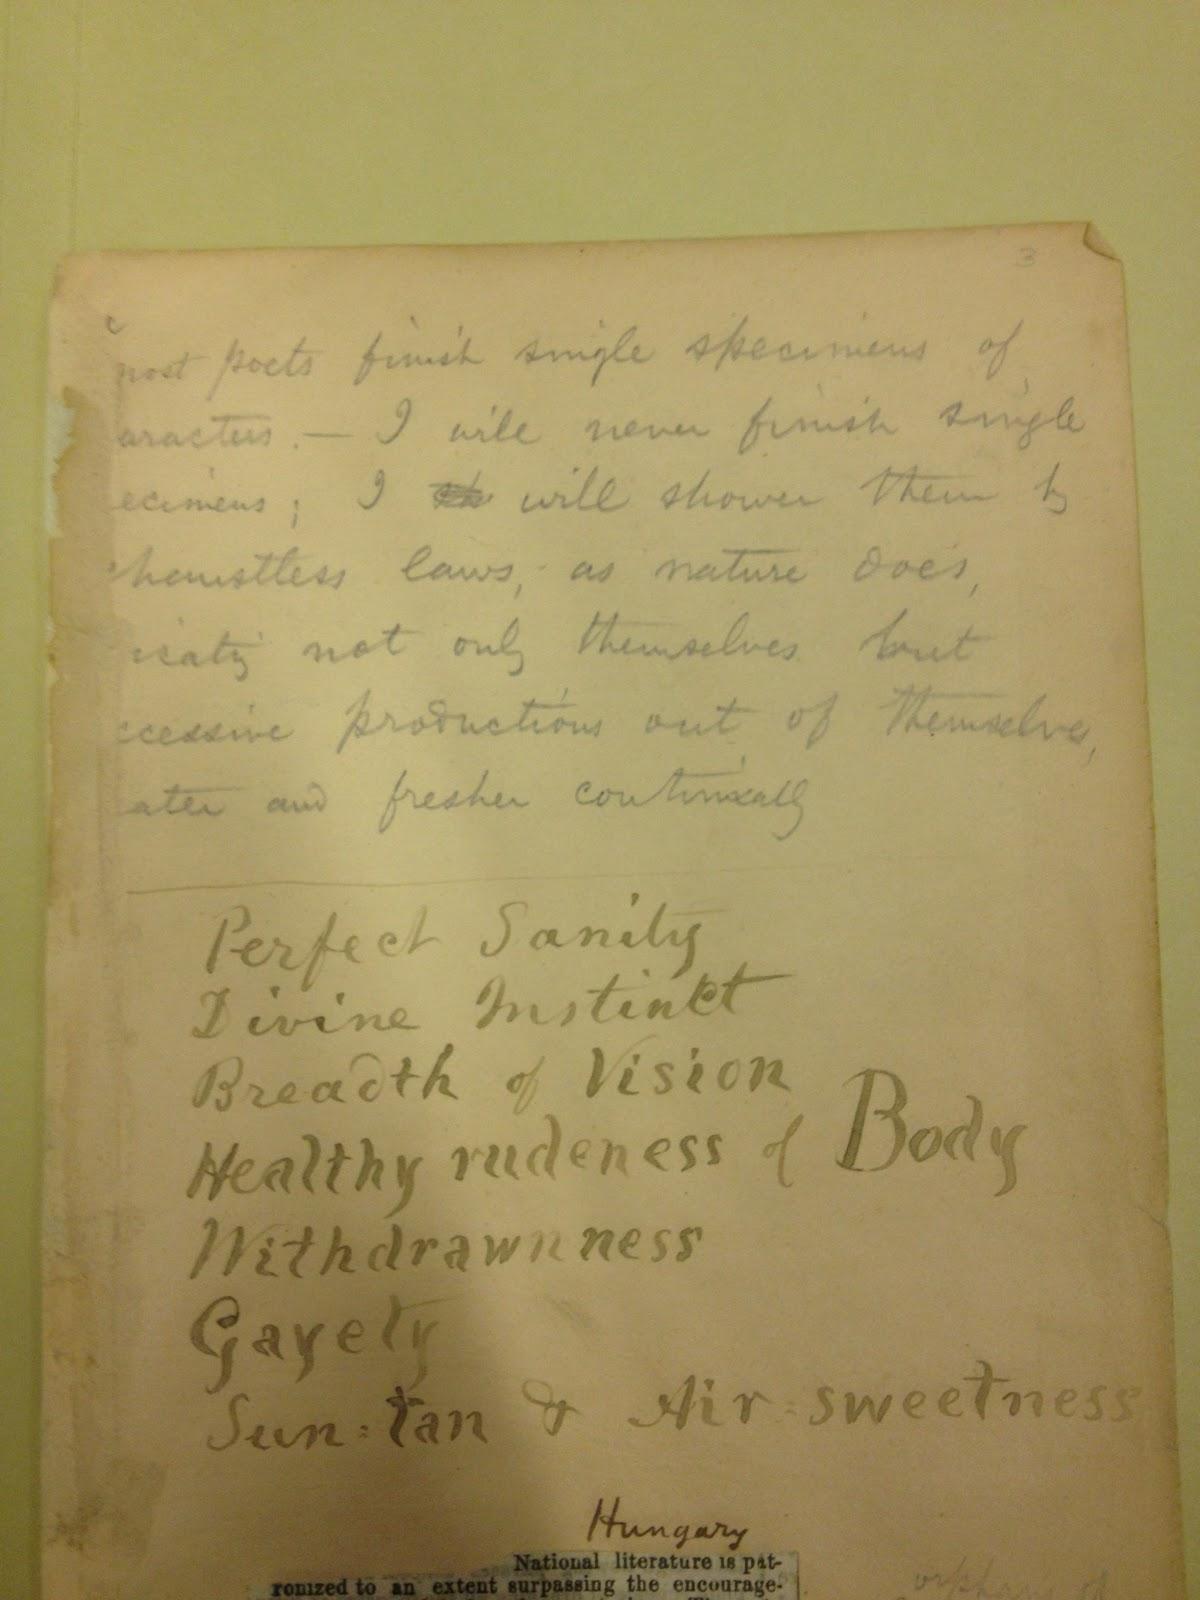 3
most poets finish single specimens of
aracters. — I will never finish single
ecimens; I will shower them by
haustless laws, as nature does,
icatig not only themselves but
ccessive productions out of themselves,
ater and fresher continually
Perfect Sanity
Divine Instinct
Breadth of Vision
Healthy rudeness of Body
Withdrawnness
Gayety
Sun-tan & Air-sweetness
Hungary
National literature is pat-
ronized to an extent surpassing the encourage-
orphans of